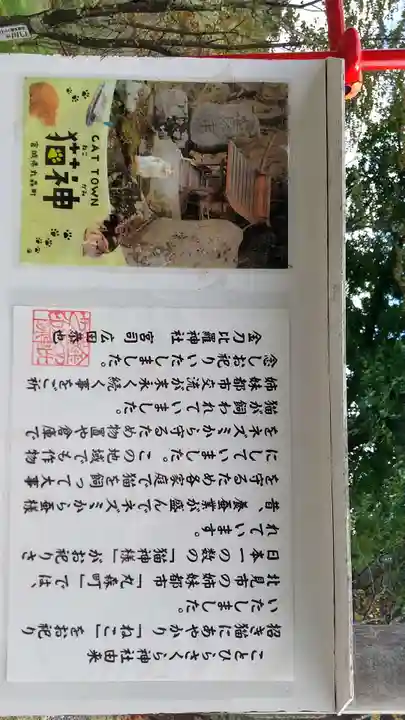 CAT TOWN
ねこ がみ
猫神
宮城県丸森町
ことひらさくら神社由来
招き猫にあやかり「ねこ」をお祀り
いたしました。
北見市の姉妹都市「丸森町」では、
日本一の数の「猫神様」がお祀りさ
れています。
昔、養蚕業が盛んでネズミから蚕様
を守るため各家庭で猫を飼って大事
にしていました。この地域でも作物
をネズミから守るため物置や倉庫で
猫が飼われていました。
姉妹都市交流が末永く続く事をご祈
念しお祀りいたしました。
金刀比羅神社 宮司 広田恭也